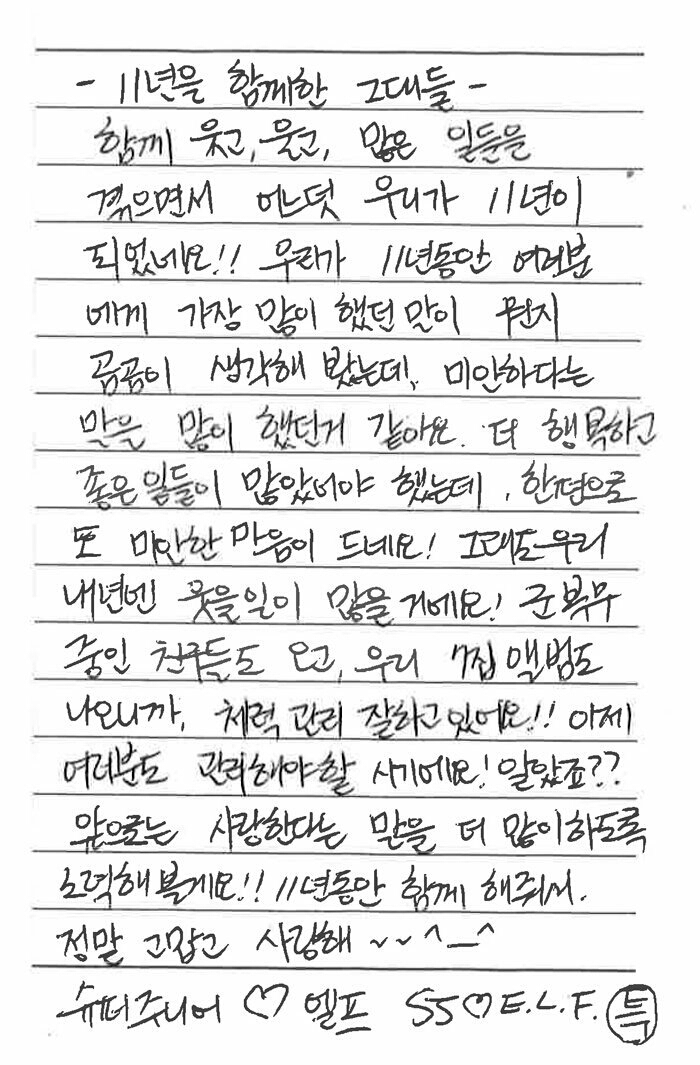 - 11년을 함께한 그대들 -
함께 웃고, 울고, 많은 일들을
겪으면서 어느덧 우리가 11년이
되었네요!! 우리가 11년동안 여러분
에게 가장 많이 했던 말이 뭔지
곰곰이 생각해 봤는데, 미안하다는
말을 많이 했던거 같아요. 더 행복하고
좋은 일들이 많았어야 했는데, 한편으로
또 미안한 마음이 드네요! 그래도 우리
내년엔 웃을일이 많을거에요! 군복무
중인 친구들도 오고, 우리 7집 앨범도
나오니까, 체력 관리 잘하고있어요!! 이제
여러분도 관리해야할 시기에요! 알았죠??
앞으로는 사랑한다는 말을 더 많이하도록
노력해볼게요!! 11년동안 함께 해줘서.
정말 고맙고 사랑해 ~~^_^
슈퍼주니어 ♡ 엘프 SJ♡E.L.F. 특